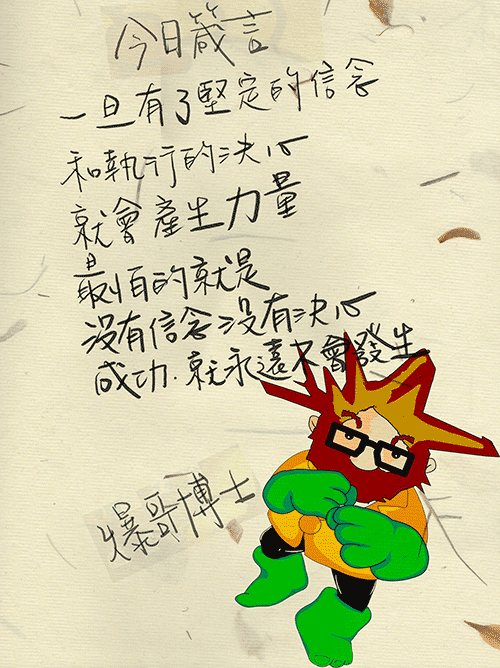 今日箴言
一旦有了堅定的信念
和執行的決心
就會產生力量
最怕的就是
沒有信念沒有決心
成功.就永遠不會發生
爆哥博士